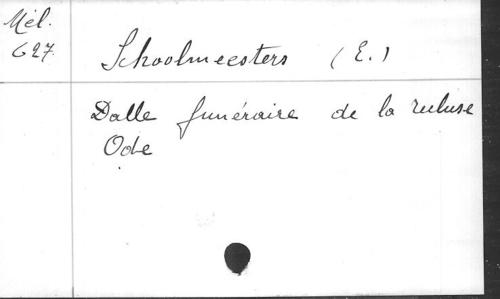 Mél.
627.
Schoolmeesters (E.)
Dalle funéraire de la recluse
Ode